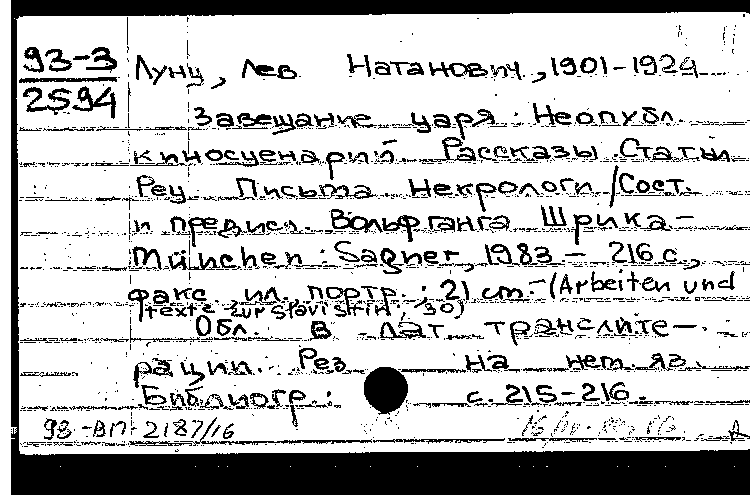 93-3
2594
Лунц, Лев Натанович, 1901-1924
Завещание царя : Неопубл.
киносценарий. Рассказы. Статьи
Рец. Письма. Некрологи / Сост.
и предисл. Вольфганга Шрика -
München : Sagner, 1983 - 216 с.,
факс. ил., портр. ; 21 cm. - (Arbeiten und
texte zur Slavistik ; 30)
Обл. в лат. транслите-
рации. Рез. на нем. яз.
Библиогр.: с. 215-216.
93-ВП-2187/16